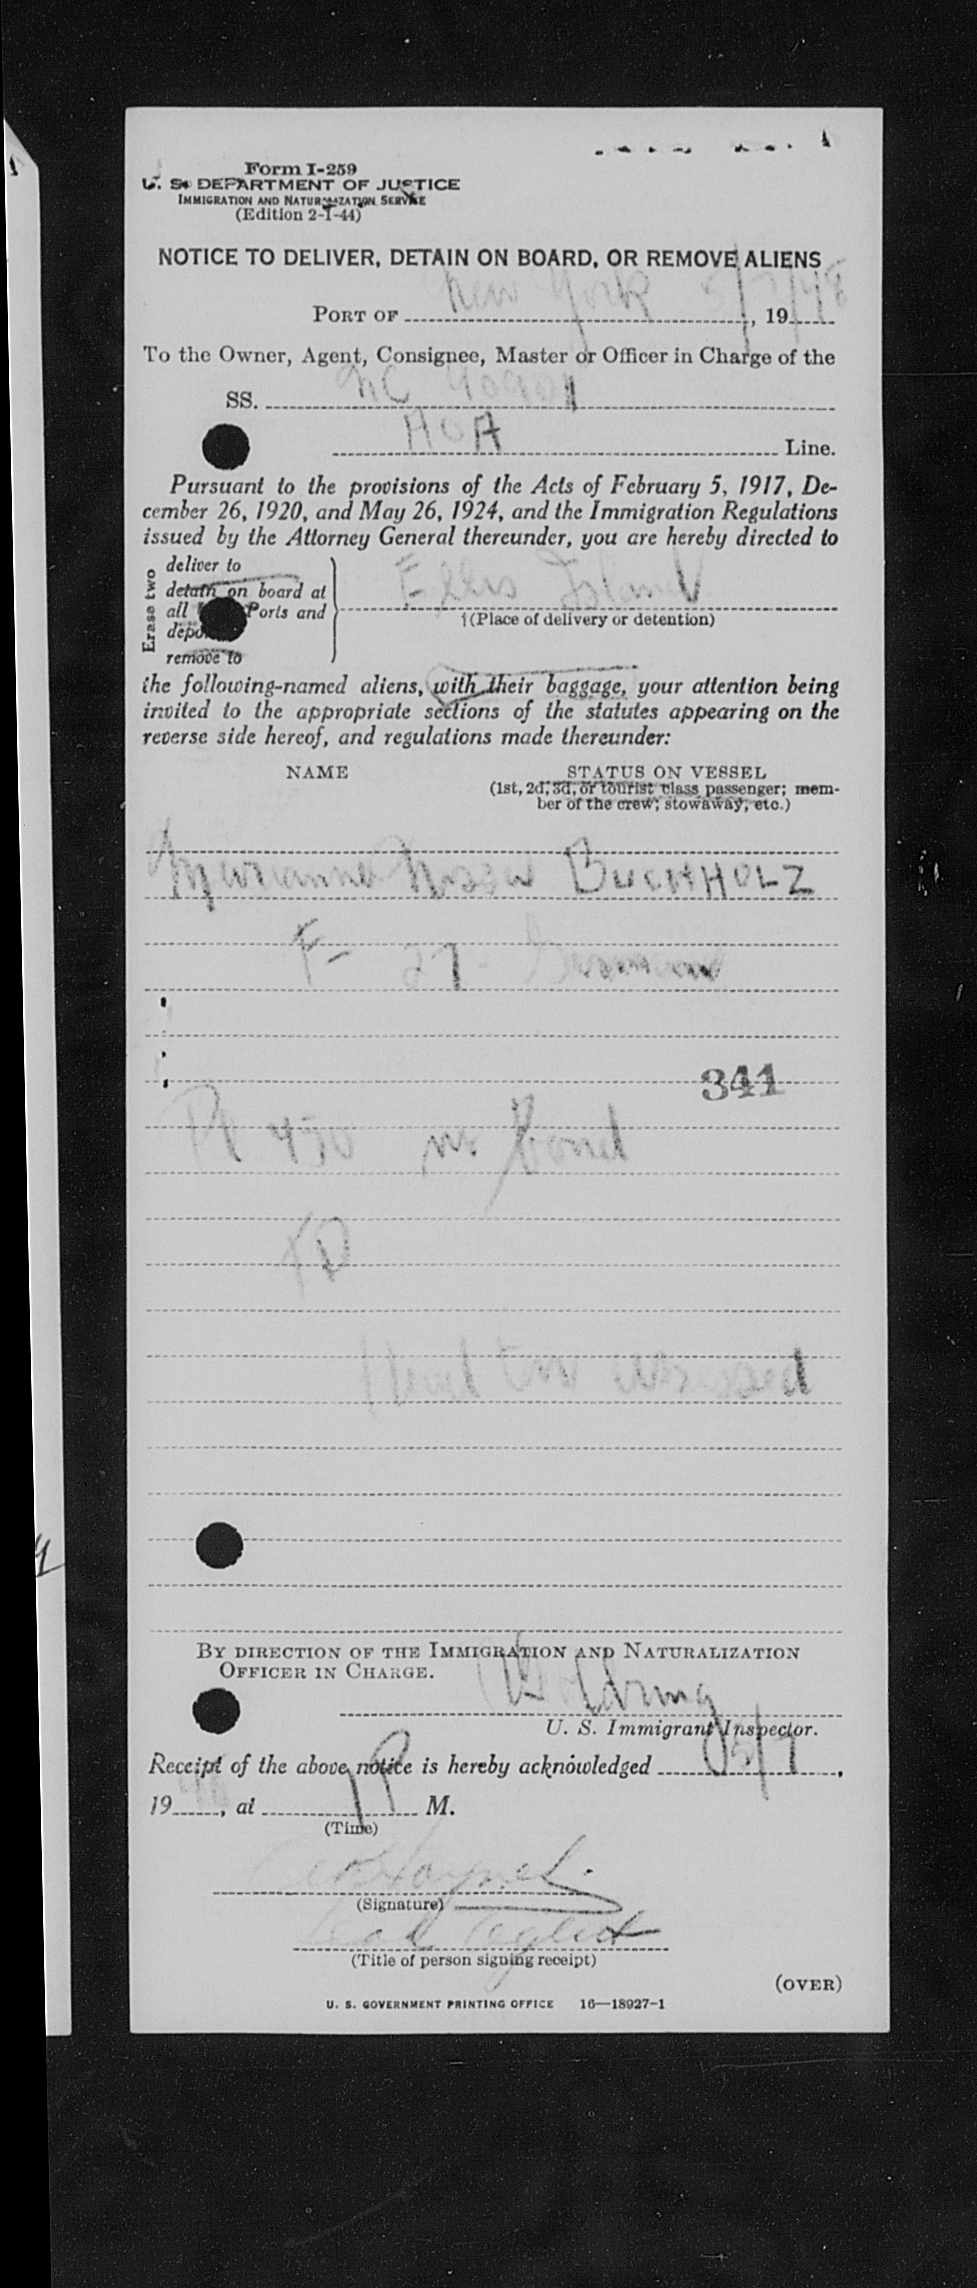 Form I-259
U. S. DEPARTMENT OF JUSTICE
IMMIGRATION AND NATURALIZATION SERVICE
(Edition 2-1-44)
NOTICE TO DELIVER, DETAIN ON BOARD, OR REMOVE ALIENS
PORT OF New York 5/7/48, 19
To the Owner, Agent, Consignee, Master or Officer in Charge of the
SS. NC 90901
AOA Line.
Pursuant to the provisions of the Acts of February 5, 1917, De-
cember 26, 1920, and May 26, 1924, and the Immigration Regulations
issued by the Attorney General thereunder, you are hereby directed to
Erase two
deliver to
detain on board at
all Ports and
remove to
Ellis Island
(Place of delivery or detention)
the following-named aliens, with their baggage, your attention being
invited to the appropriate sections of the statutes appearing on the
reverse side hereof, and regulations made thereunder:
NAME STATUS ON VESSEL
(1st, 2d, 3d, or tourist class passenger; mem-
ber of the crew; stowaway, etc.)
Marianna BUCHHOLZ
F- 27-
341
no Bond
Head tax assessed
BY DIRECTION OF THE IMMIGRATION AND NATURALIZATION
OFFICER IN CHARGE.
U. S. Immigrant Inspector.
Receipt of the above notice is hereby acknowledged 5/7,
19 48, at P M.
(Time)
(Signature)
(Title of person signing receipt)
(OVER)
U. S. GOVERNMENT PRINTING OFFICE 16—18927-1